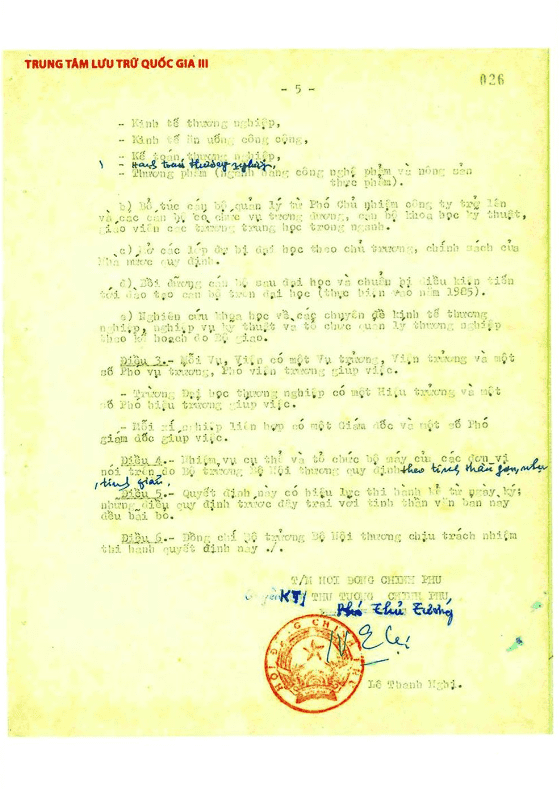 TRUNG TÂM LƯU TRỮ QUỐC GIA III
026
- 5 -
- Kinh tế thương nghiệp,
- Kinh tế ăn uống công cộng,
- Kế toán thương nghiệp,
- Thương phẩm (ngành hàng công nghệ phẩm và nông sản
thực phẩm).
b) Bổ túc cán bộ quản lý từ Phó Chủ nhiệm công ty trở lên
và các cán bộ có chức vụ tương đương, cán bộ khoa học kỹ thuật,
giáo viên các trường trung học trong ngành.
c) Mở các lớp dự bị đại học theo chủ trương, chính sách của
Nhà nước quy định.
d) Bồi dưỡng cán bộ sau đại học và chuẩn bị điều kiện tiến
tới đào tạo cán bộ trên đại học (thực hiện vào năm 1985).
e) Nghiên cứu khoa học về các chuyên đề kinh tế thương
nghiệp, nghiệp vụ kỹ thuật và tổ chức quản lý thương nghiệp
theo kế hoạch do Bộ giao.
Điều 3.- Mỗi Vụ, Viện có một Vụ trưởng, Viện trưởng và một
số Phó vụ trưởng, Phó viện trưởng giúp việc.
- Trường Đại học thương nghiệp có một Hiệu trưởng và một
số Phó hiệu trưởng giúp việc.
- Mỗi xí nghiệp liên hợp có một Giám đốc và một số Phó
giám đốc giúp việc.
Điều 4.- Nhiệm vụ cụ thể và tổ chức bộ máy của các đơn vị
nói trên do Bộ trưởng Bộ Nội thương quy định theo tinh thần gọn, nhẹ
, tinh giản.
Điều 5.- Quyết định này có hiệu lực thi hành kể từ ngày ký;
những điều quy định trước đây trái với tinh thần văn bản này
đều bãi bỏ.
Điều 6.- Đồng chí Bộ trưởng Bộ Nội thương chịu trách nhiệm
thi hành quyết định này ./.
T/M HỘI ĐỒNG CHÍNH PHỦ
KT/ THỦ TƯỚNG CHÍNH PHỦ
Phó Thủ Tướng
HỘI ĐỒNG CHÍNH PHỦ
Lê Thanh Nghị.